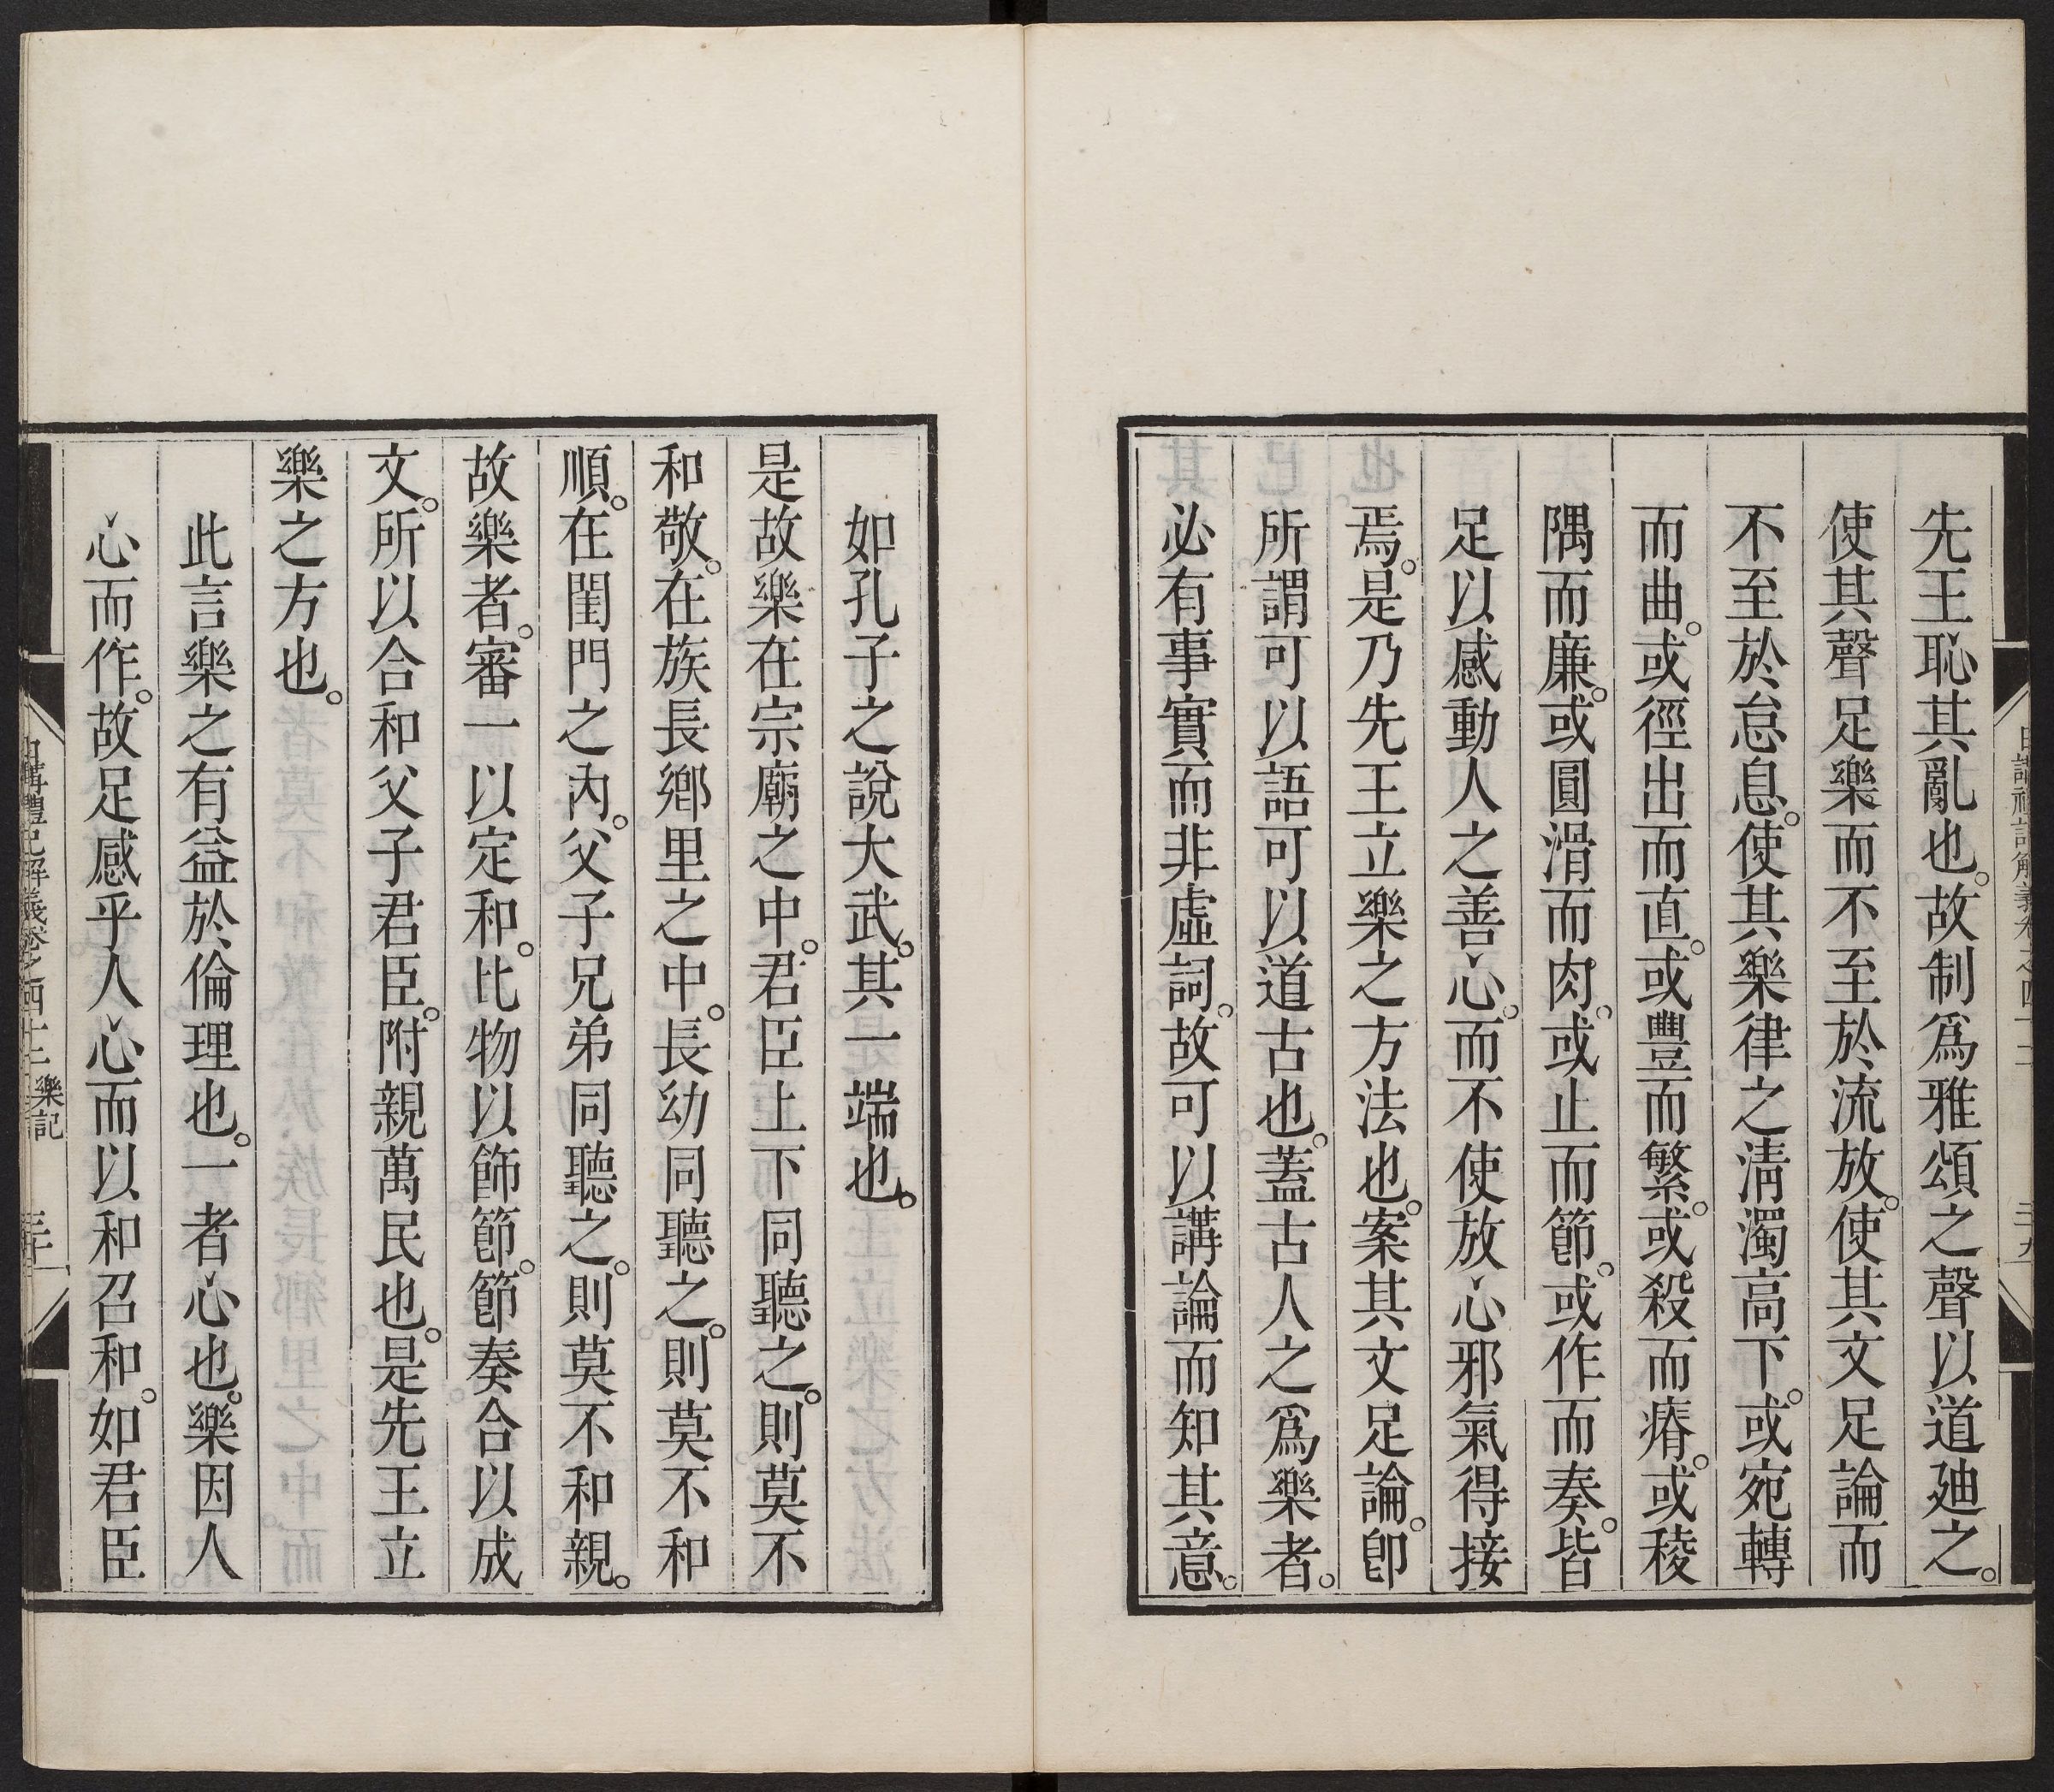 先王恥其亂也。故制爲雅頌之聲以道廸之。
使其聲足樂而不至於流放。使其文足論而
不至於怠息。使其樂律之淸濁高下。或宛轉
而曲。或徑出而直。或豐而繁。或殺而瘠。或稜
隅而廉。或圓滑而肉。或止而節。或作而奏。皆
足以感動人之善心。而不使放心邪氣得接
焉。是乃先王立樂之方法也。案其文足論。卽
所謂可以語可以道古也。蓋古人之爲樂者。
必有事實而非虛詞。故可以講論而知其意。
如孔子之說大武。其一端也。
是故樂在宗廟之中。君臣上下同聽之。則莫不
和敬。在族長鄉里之中。長幼同聽之。則莫不和
順。在閨門之內。父子兄弟同聽之。則莫不和親。
故樂者。審一以定和。比物以飾節。節奏合以成
文。所以合和父子君臣。附親萬民也。是先王立
樂之方也。
此言樂之有益於倫理也。一者心也。樂因人
心而作。故足感乎人心而以和召和。如君臣
日講禮記解義卷之四十二 樂記